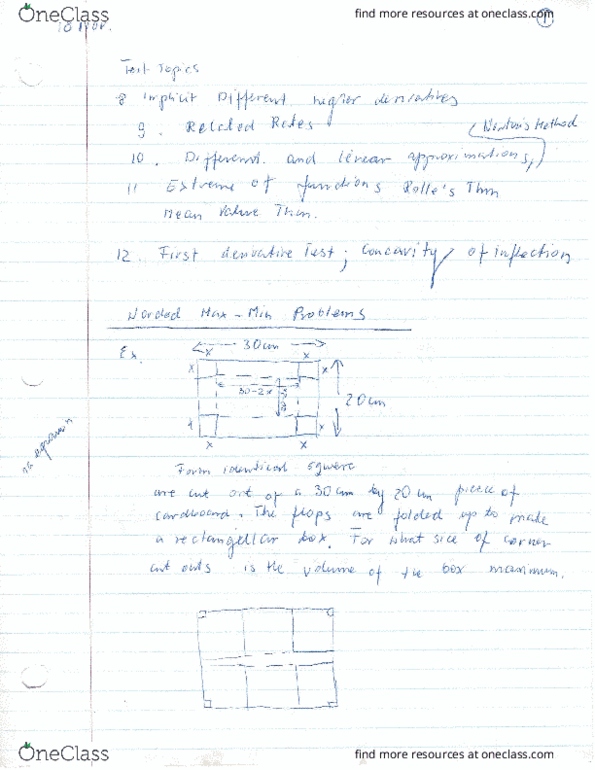 OneClass
find more resources at oneclass.com
18 Nov.
1
Test Topics
8 Implicit Different. higher derivatives
9. Related Rates
(Newton's Method
10. Different. and linear approximations,)
11 Extreme of functions Rolle's Thm
Mean Value Thm.
12. First derivative Test; Concavity of inflection
Worded Max - Min Problems
Ex.
30cm
x x
x x
30-2x
20cm
x x
x x
Form identical square
are cut out of a 30 cm by 20 cm piece of
cardboard. The flops are folded up to make
a rectangellar box. For what size of corner
cut outs is the volume of the box maximum.
OneClass
find more resources at oneclass.com